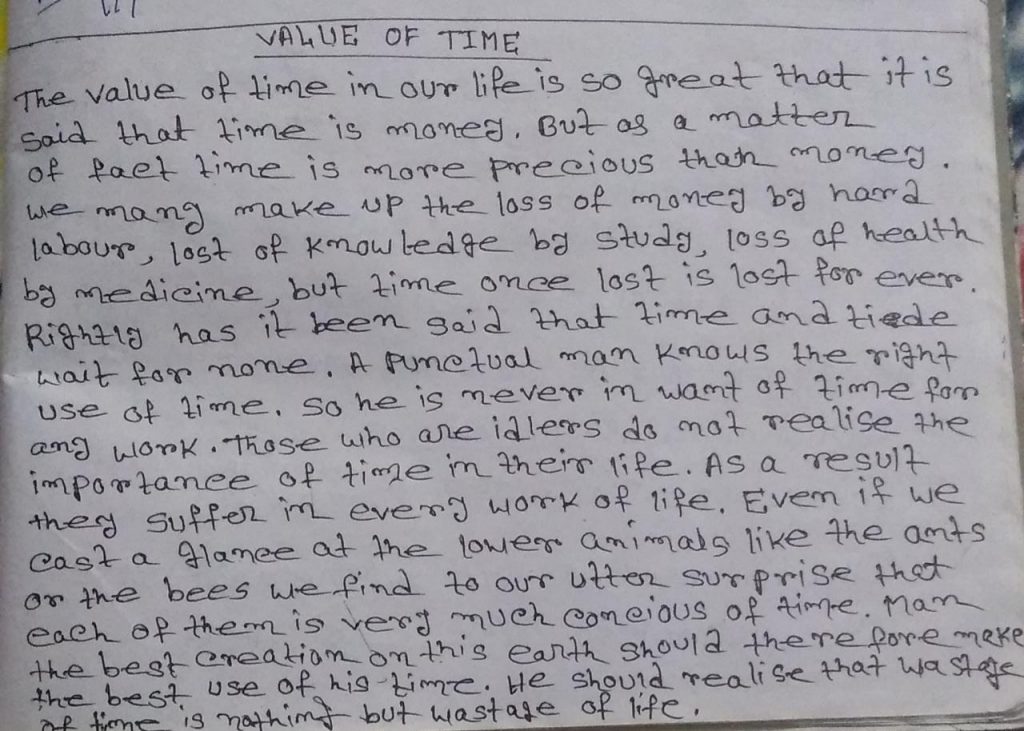 VALUE OF TIME
The value of time in our life is so great that it is
said that time is money. But as a matter
of fact time is more precious than money.
we mang make up the loss of money by hard
labour, lost of knowledge by study, loss of health
by medicine, but time once lost is lost for ever.
Rightly has it been said that time and tiede
wait for none. A punctual man knows the right
use of time. So he is never in want of time for
any work. Those who are idlers do not realise the
importance of time in their life. As a result
they suffer in every work of life. Even if we
cast a glance at the lower animals like the ants
or the bees we find to our utter surprise that
each of them is very much concious of time. Man
the best creation on this earth should therefore make
the best use of his time. He should realise that wastage
of time is nothing but wastage of life.